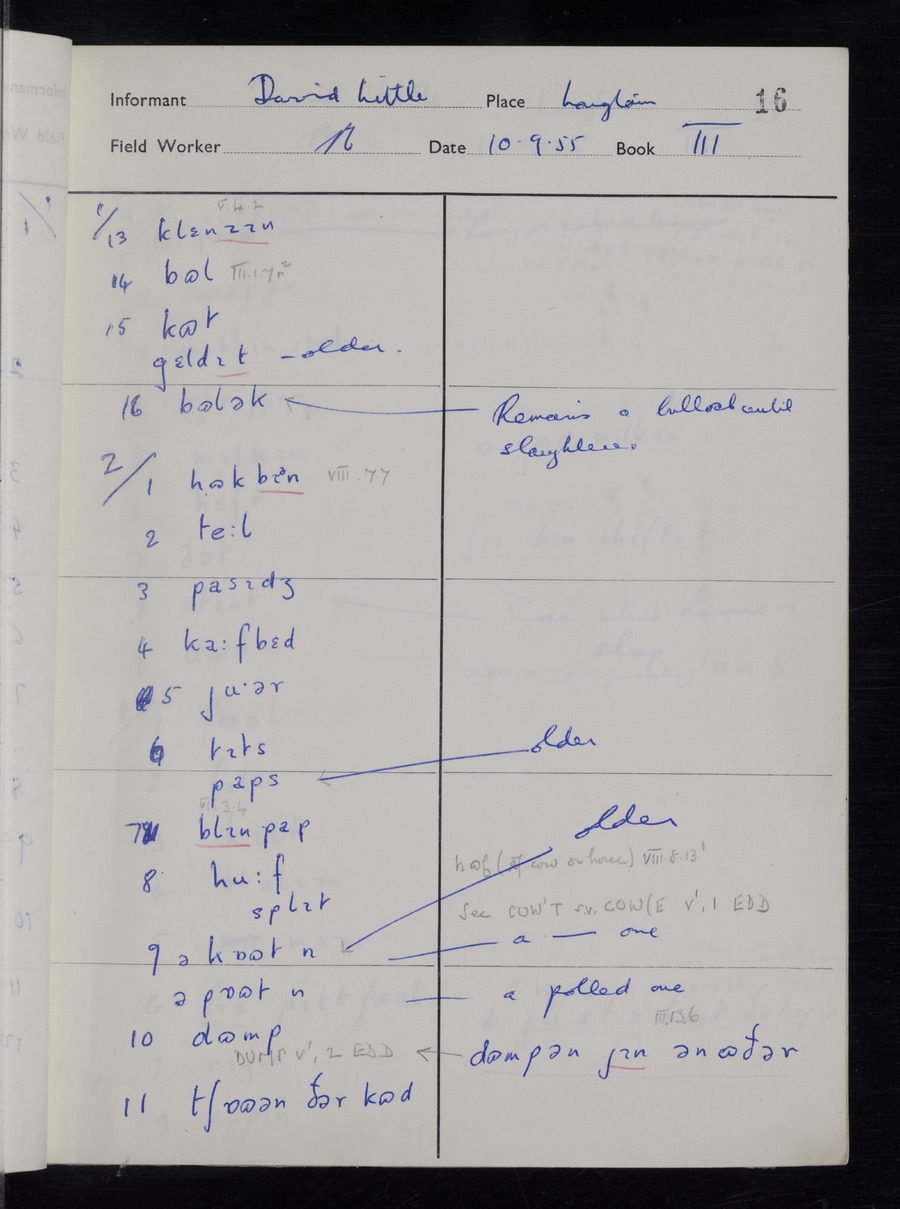 Informant David Little Place Langholm 16
Field Worker Date 10·9·55 Book III
V.4.2
1/13 klɛnzɪn
14 bɷl III.1.
15 kɷt
gɛldɪt – older.
16 bɷlək Remains a bullock until
slaughter.
2/1 hɷkbɪᵊn VIII.7.7
2 te:l
3 pasɪdʒ
4 ka:fbɛd
5 ju·ər
6 tɪts older
paps
VI 3.4
7 blɪn pap older
8 hu:f hɷf (of cow or horse) VIII.8.13'
splɪt See COW'T sv. COW(E v', 1 EDD
9 ə kɒɷt n a — one
ə pɒɷt n a polled one
III.13.6
10 dɷmp dɷmpən jɪn ənɷðər
DUMP v', 2 EDD
11 tʃɒɷən ðər kɷd